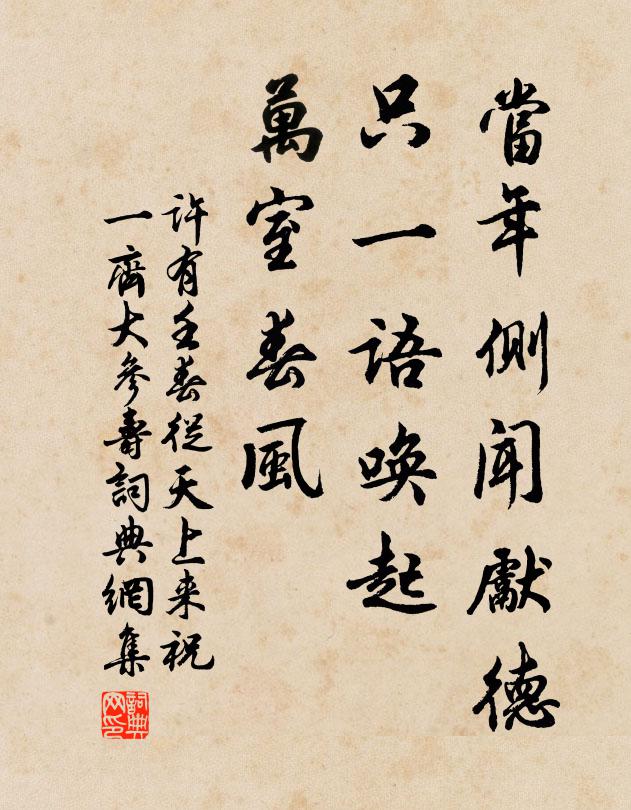 當年側聞獻德
只一語喚起
萬室春風
許有壬春從天上來祝
一齋大參壽詞典網集
詞典
网印